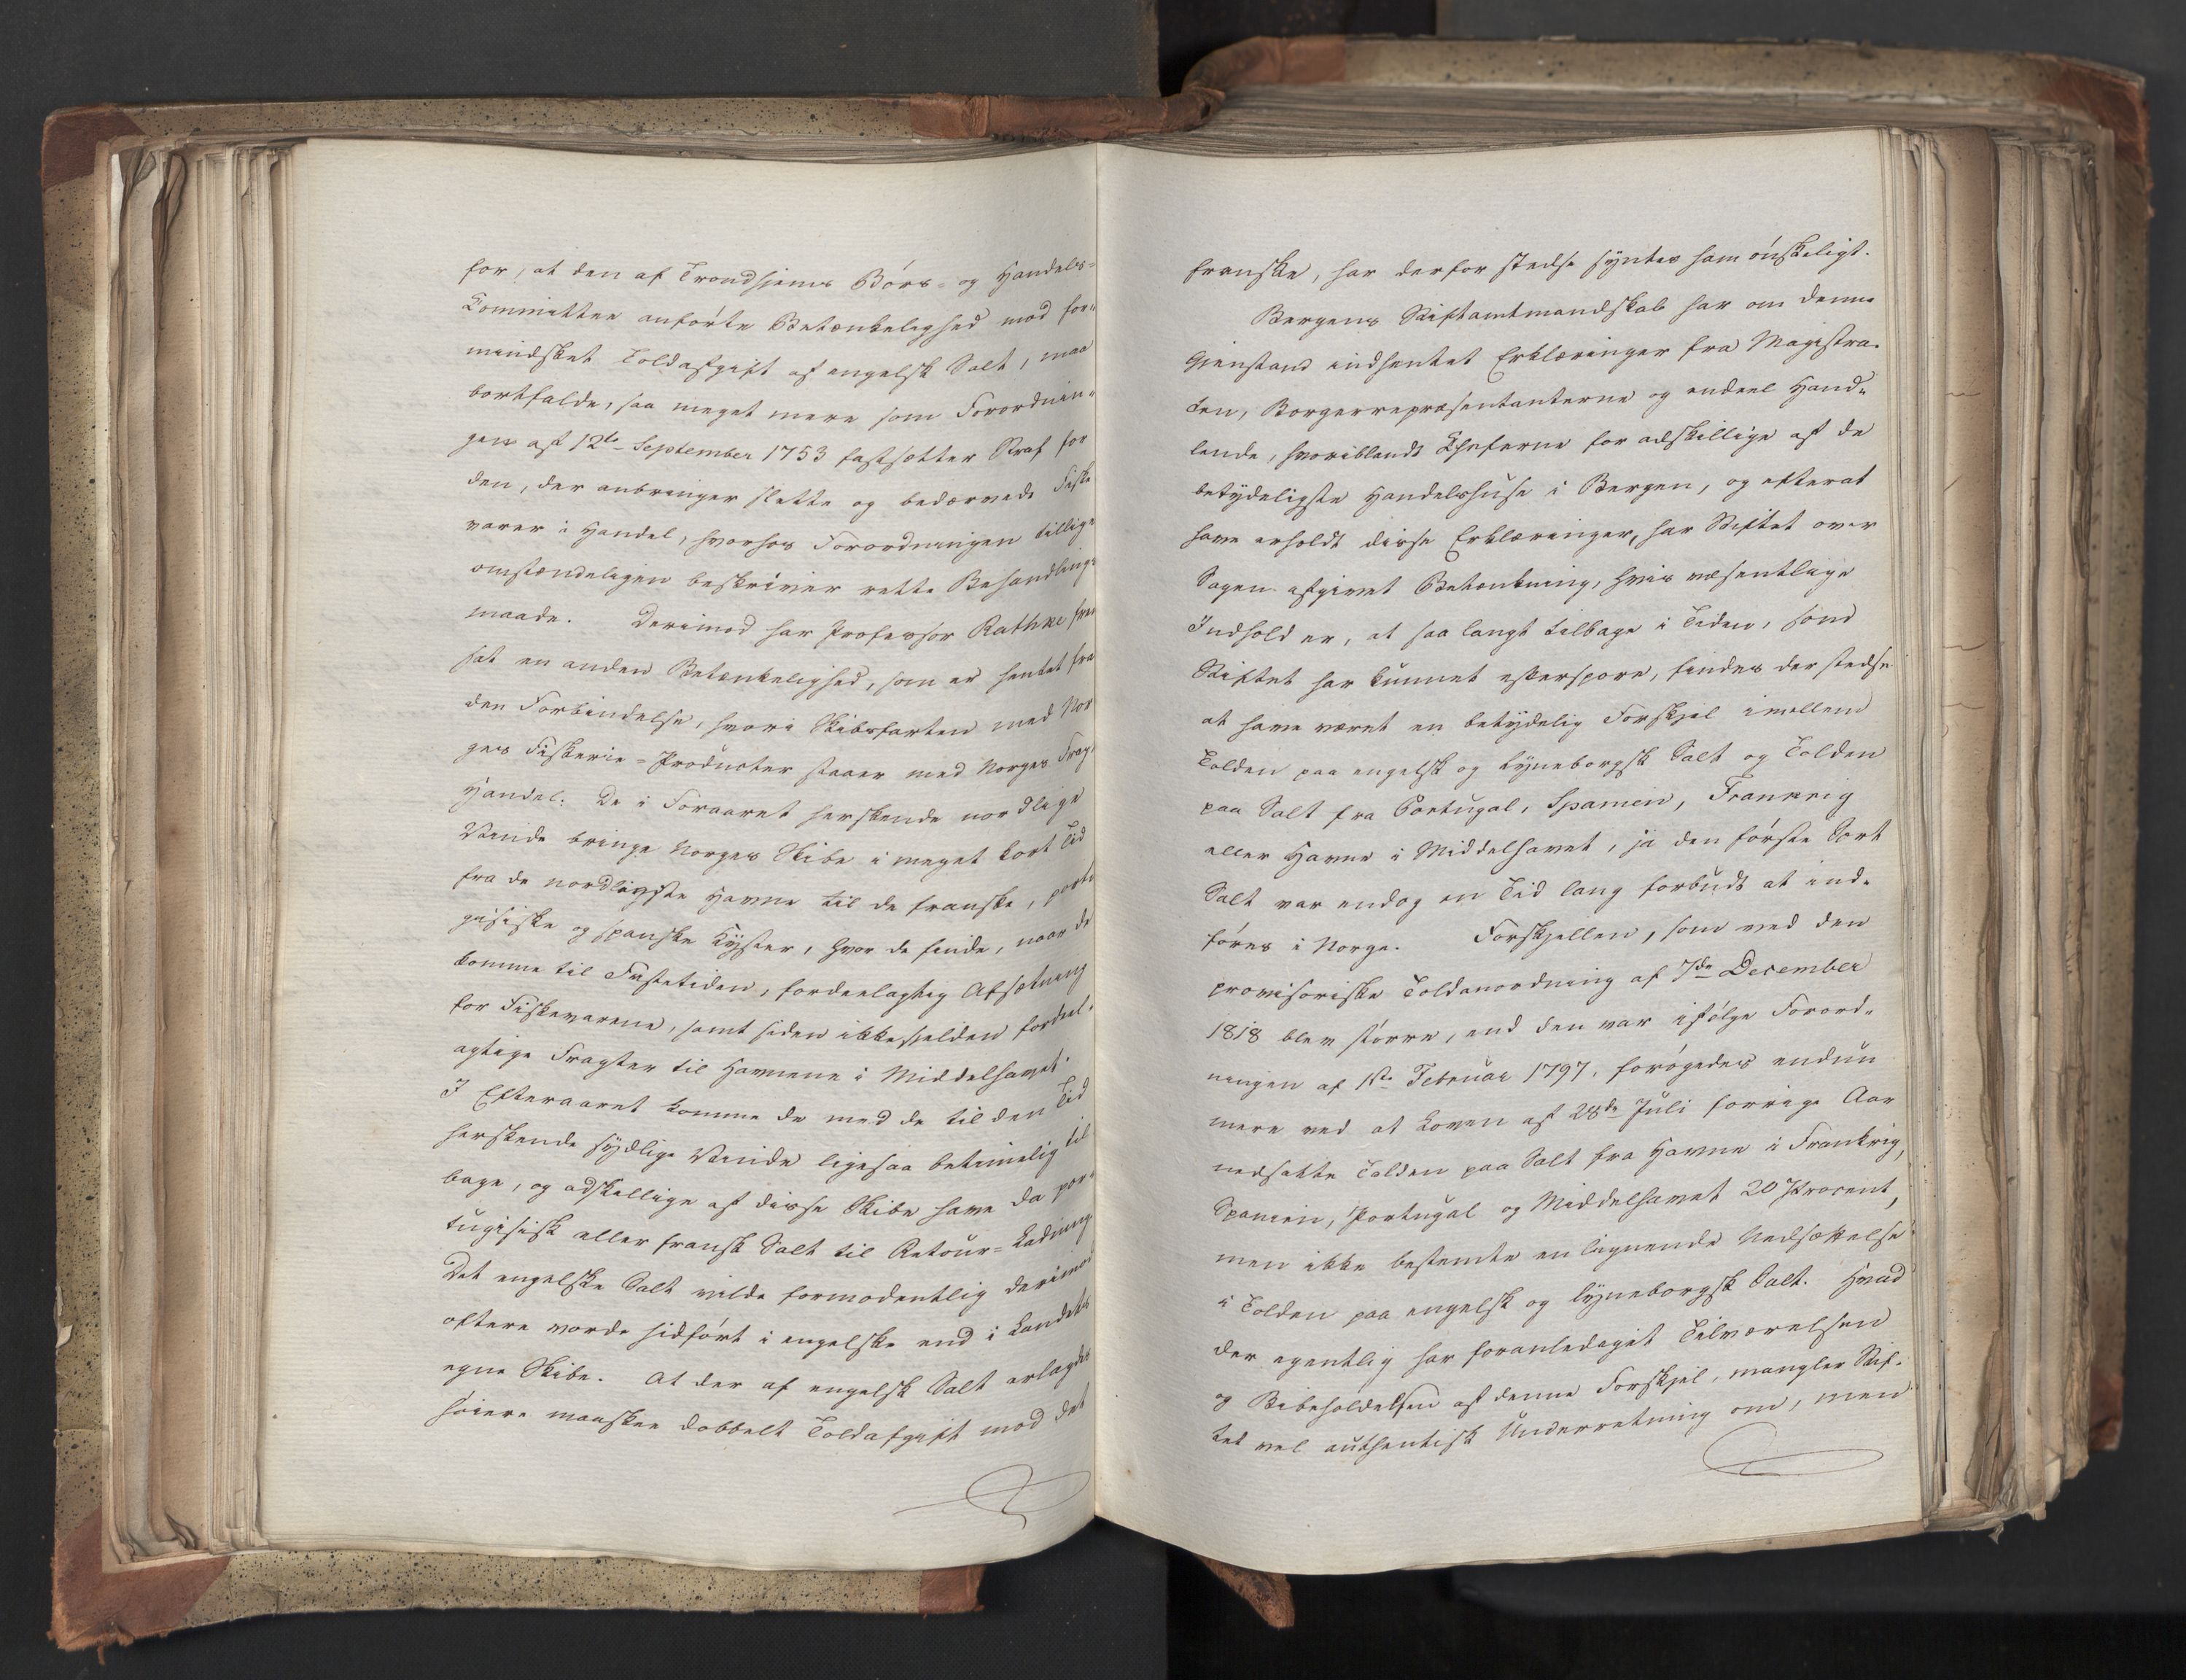 for, at den af Trondhjems Börs- og Handels-
Committee anförte Betænkelighed mod for-
mindsket Toldafgift af engelsk Salt, maa
bortfalde, saa meget mere som Forordnin-
gen af 12te September 1753 fastsætter Straf for
den, der anbringer slette og bedærvede Fiske
varer i Handel, hvorhos Forordningen tillige
omstændeligen beskriver rette Behandlings
maade. Derimod har Professor Rathke frem
sat en anden Betænkelighed, som er hentet fra
den Forbindelse, hvori Skibsfarten med Nor
ges Fiskerie-Producter staaer med Norges Fragt
Handel. De i Foraaret herskende nordlige
Vinde bringe Norges Skibe i meget kort Tid
fra de nordligste Havne til de franske, portu
gisiske og spanske Kyster, hvor de finde, naar de
komme til Fastetiden, fordeelagtig Afsætning
for Fiskevarene, samt siden ikke sjelden fordeel-
agtige Fragter til Havnene i Middelhavet.
I Efteraaret komme de med de til den Tid
herskende sydlige Vinde ligesaa betimelig til
bage, og adskillige af disse Skibe have da por-
tugisisk eller fransk Salt til Retour-Ladning
Det engelske Salt vilde formodentlig derimod
oftere vorde hidfört i engelske end i Landets
egne Skibe. At der af engelsk Salt erlagdes
höiere maaskee dobbelt Toldafgift mod det
franske, har derfor stedse syntes ham önskeligt.
Bergens Stiftamtmandskab har om denne
Gjenstand indhentet Erklæringer fra Magistra-
ten, Borgerrepræsentanterne og endeel Hand-
lende, hvoriblandt Cheferne for adskillige af de
betydeligste Handelshuse i Bergen, og efterat
have erholdt disse Erklæringer, har Stiftet over
Sagen afgivet Betænkning, hvis væsentlige
Indhold er, at saa langt tilbage i Tiden, som
Stiftet har kunnet efterspore, findes der stedse
at have været en betydelig Forskjel imellem
Tolden paa engelsk og lyneborgsk Salt og Tolden
paa Salt fra Portugal, Spanien, Frankrig
eller Havne i Middelhavet, ja den förste Sort
Salt var endog en Tid lang forbudt at ind-
föres i Norge. Forskjellen, som ved den
provisoriske Toldanordning af 7de December
1818 blev större, end den var ifölge Forord-
ningen af 1ste Februar 1797, forögedes endnu
mere ved at Loven af 28de Juli forrige Aar
nedsatte Tolden paa Salt fra Havne i Frankrig,
Spanien, Portugal og Middelhavet 20 Procent,
men ikke bestemte en lignende Nedsættelse
i Tolden paa engelsk og lyneborgsk Salt. Hvad
der egentlig har foranlediget Tilværelsen
og Bibeholdelsen af denne Forskjel, mangler Stif-
tet vel authentisk Underretning om, men